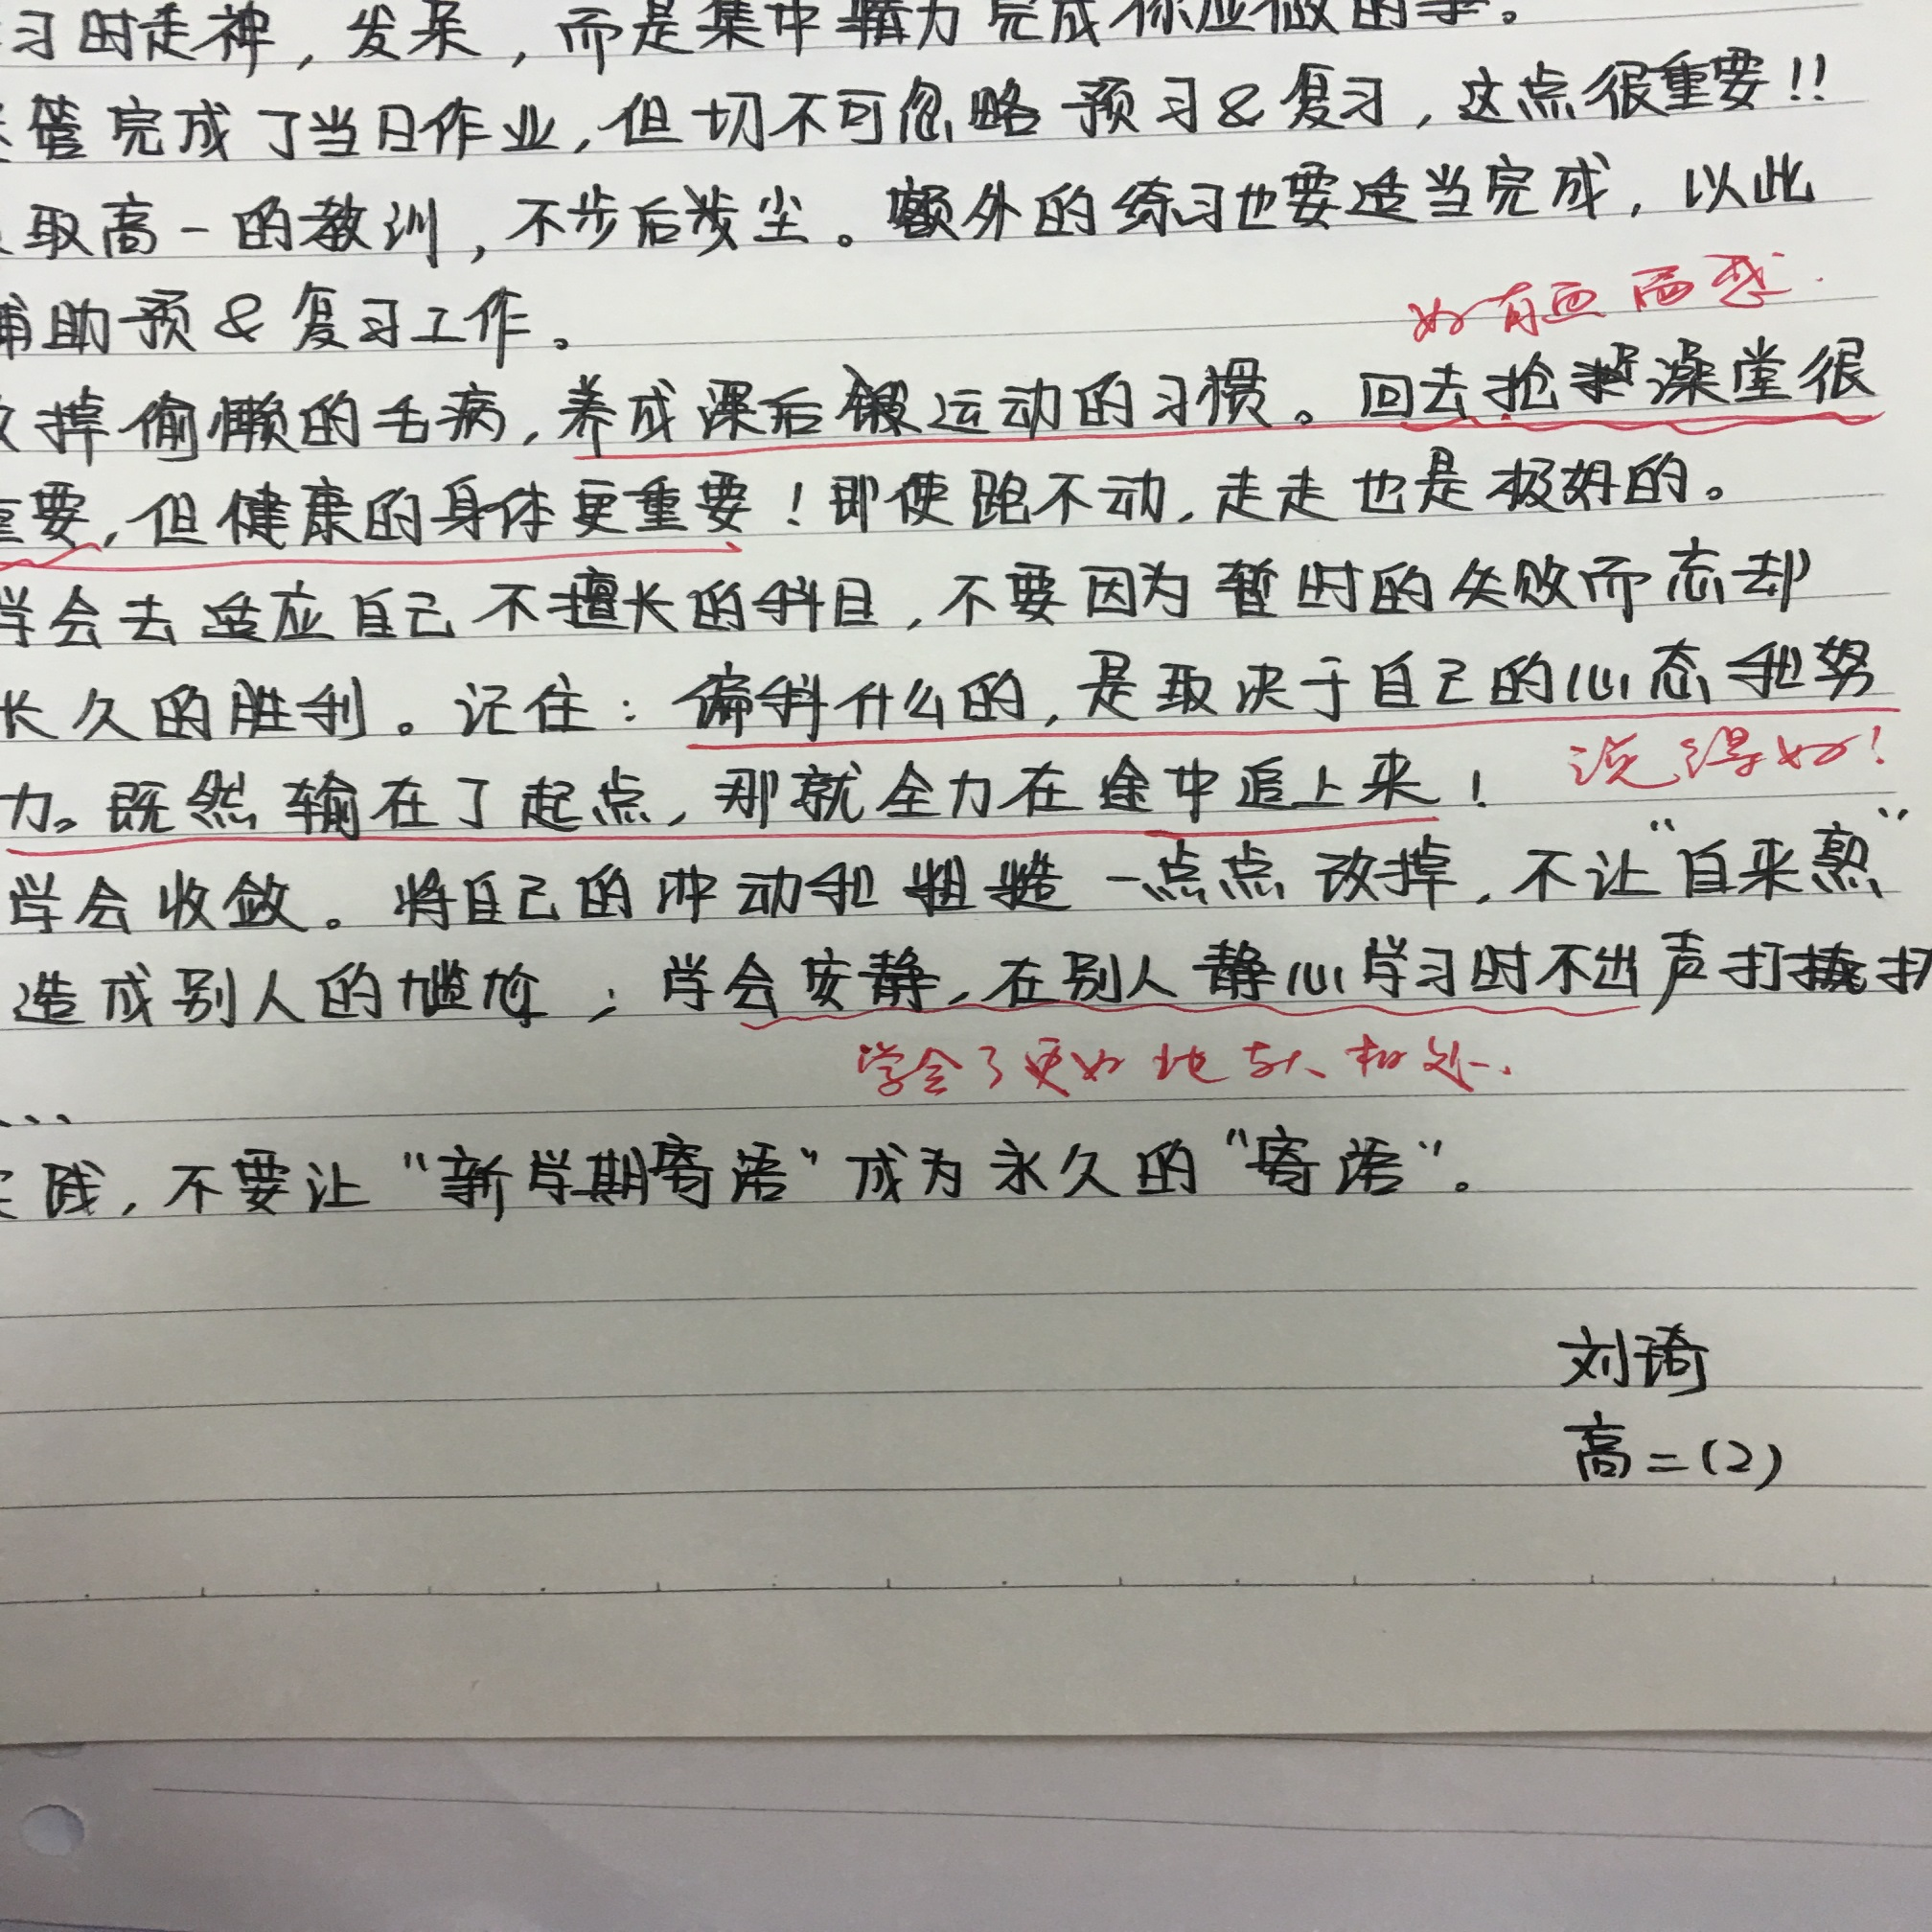 习时走神，发呆，而是集中精力完成你应做的事。
管完成了当日作业，但切不可忽略预习&复习，这点很重要！！
取高一的教训，不步后步尘。额外的练习也要适当完成，以此
辅助预&复习工作。
好有画面感.
改掉偷懒的毛病，养成课后锻运动的习惯。回去抢澡堂很
重要，但健康的身体更重要！即使跑不动，走走也是极好的。
学会去适应自己不擅长的科目，不要因为暂时的失败而忘却
长久的胜利。记住：偏科什么的，是取决于自己的心态和努
说得好！
力。既然输在了起点，那就全力在途中追上来！
学会收敛。将自己的冲动和粗糙一点点改掉，不让“自来熟”
造成别人的尴尬；学会安静，在别人静心学习时不出声打扰
学会了更好地与人相处.
...
践，不要让“新学期寄语”成为永久的“寄语”。
刘琦
高二(2)